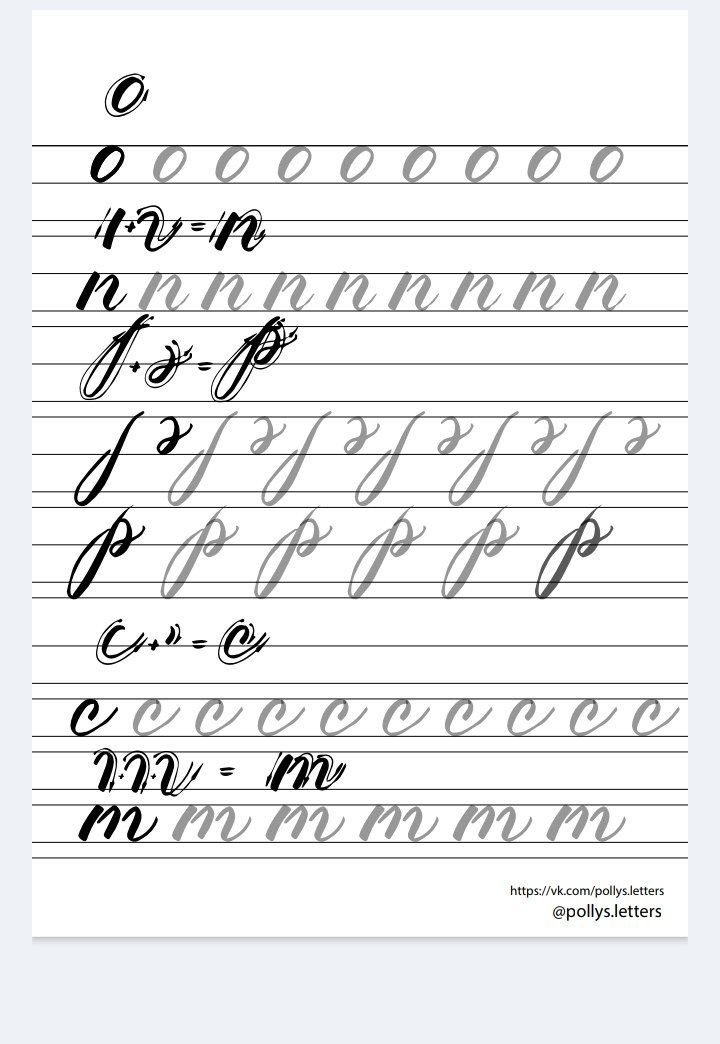 о
о о о о о о о о о
+ = п
п п п п п п п п п
+ = р
р р р р р р
+ = с
с с с с с с с с с с
+ + = т
т т т т т т
https://vk.com/pollys.letters
@pollys.letters